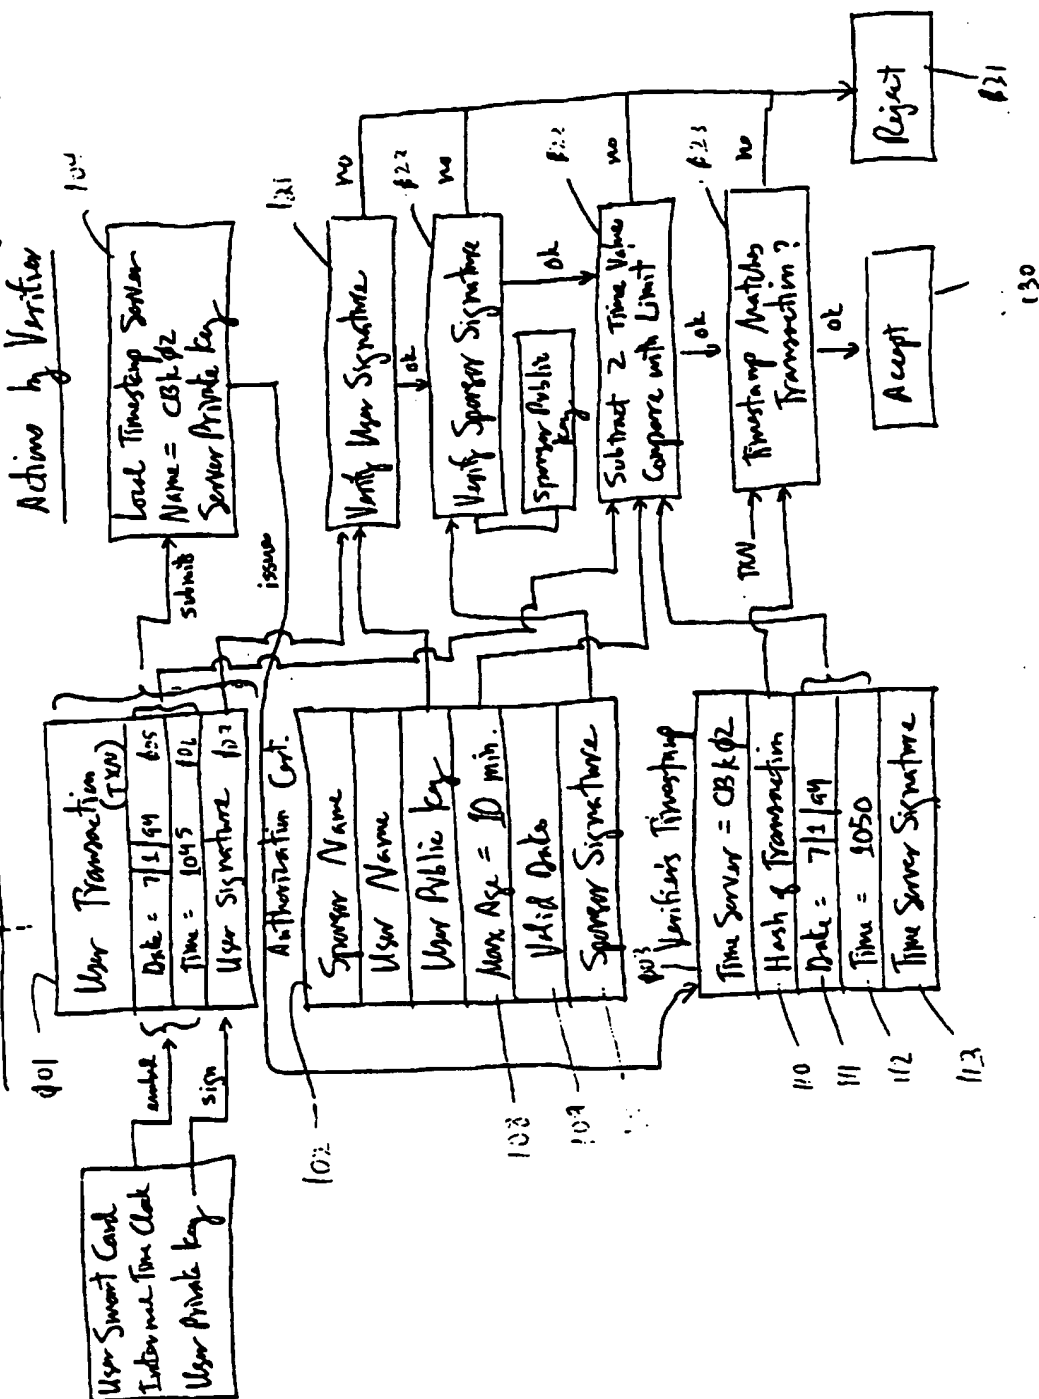 Action by Verifier
User Smart Card
Internal Time Clock
User Private Key
embed
sign
101
User Transaction
(TXN)
Date = 7/1/94 105
Time = 1045 106
User Signature 107
submit
104
Local Timestamp Server
Name = CBKØ2
Server Private Key
issue
Authorization Cert.
102
Sponsor Name
User Name
User Public Key
Max Age = 10 min.
Valid Dates
Sponsor Signature
108
109
103
Verifiers Timestamp
Time Server = CBKØ2
Hash of Transaction
Date = 7/1/94
Time = 1050
Time Server Signature
110
111
112
113
121
Verify User Signature
no
ok
122
Verify Sponsor Signature
no
ok
Sponsor Public
Key
122
Subtract 2 Time Values
Compare with Limit
no
ok
TXN
123
Timestamp Matches
Transaction?
no
ok
Accept
130
Reject
131